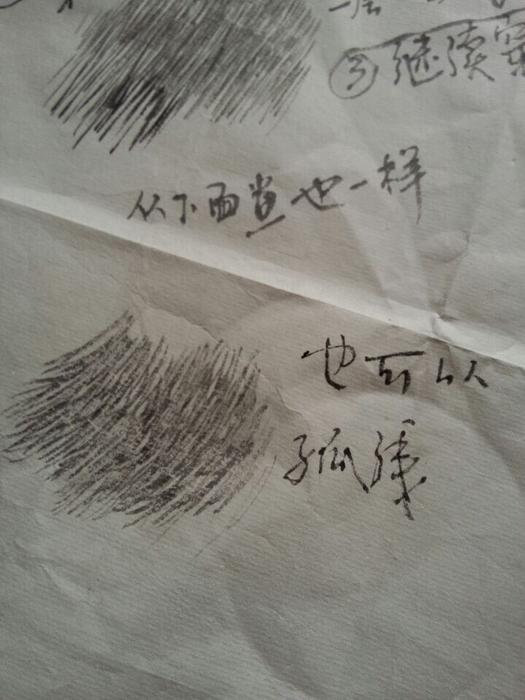 一层
③继续
从下面岂也一样
也可以
孤线